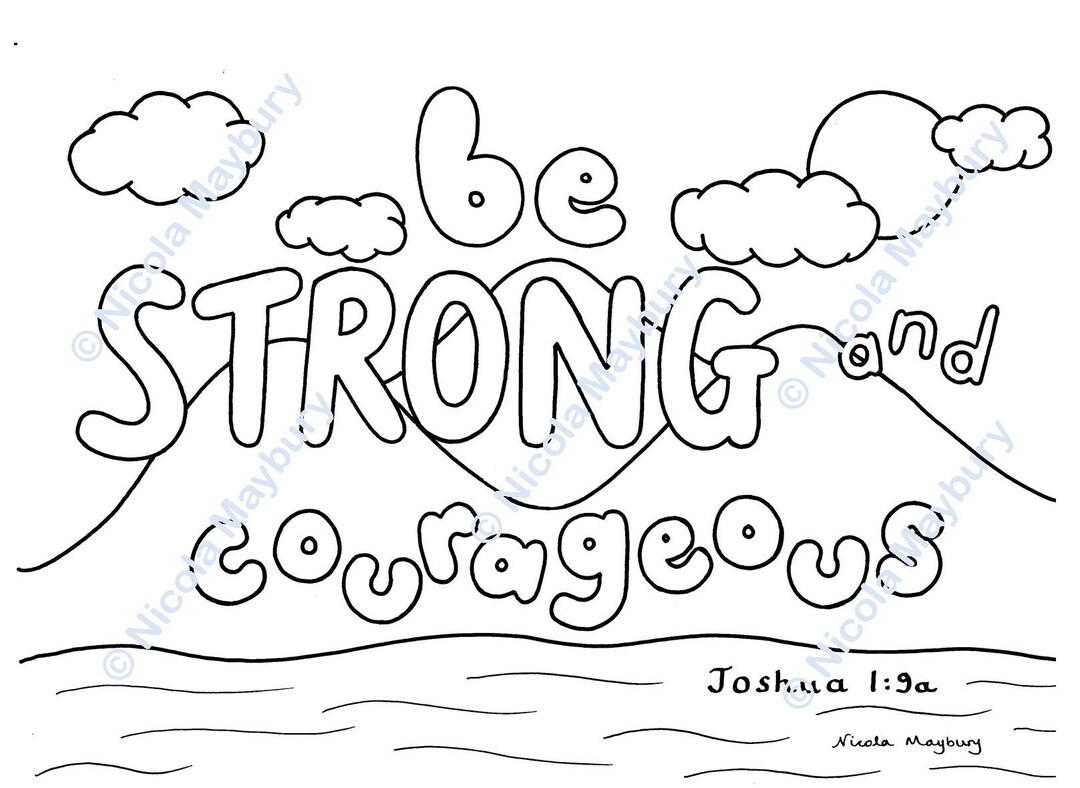 be
STRONG and
courageous
Joshua 1:9a
Nicola Maybury
© Nicola Maybury
© Nicola Maybury
© Nicola Maybury
© Nicola Maybury
© Nicola Maybury